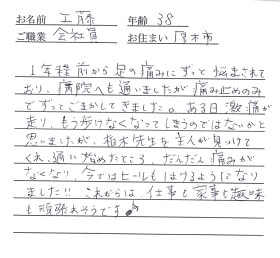 お名前 工藤 年齢 38
ご職業 会社員 お住まい 厚木市
1年程前から足の痛みにずっと悩まされて
おり、病院へも通いましたが痛み止めのみ
でずっとごまかしてきました。ある日激痛が
走り、もう歩けなくなってしまうのではないかと
思いましたが、柏木先生を主人が見つけて
くれ、通い始めたところ、だんだん痛みが
なくなり、今ではヒールもはけるようになり
ました!! これからは、仕事も家事も趣味
も頑張れそうです